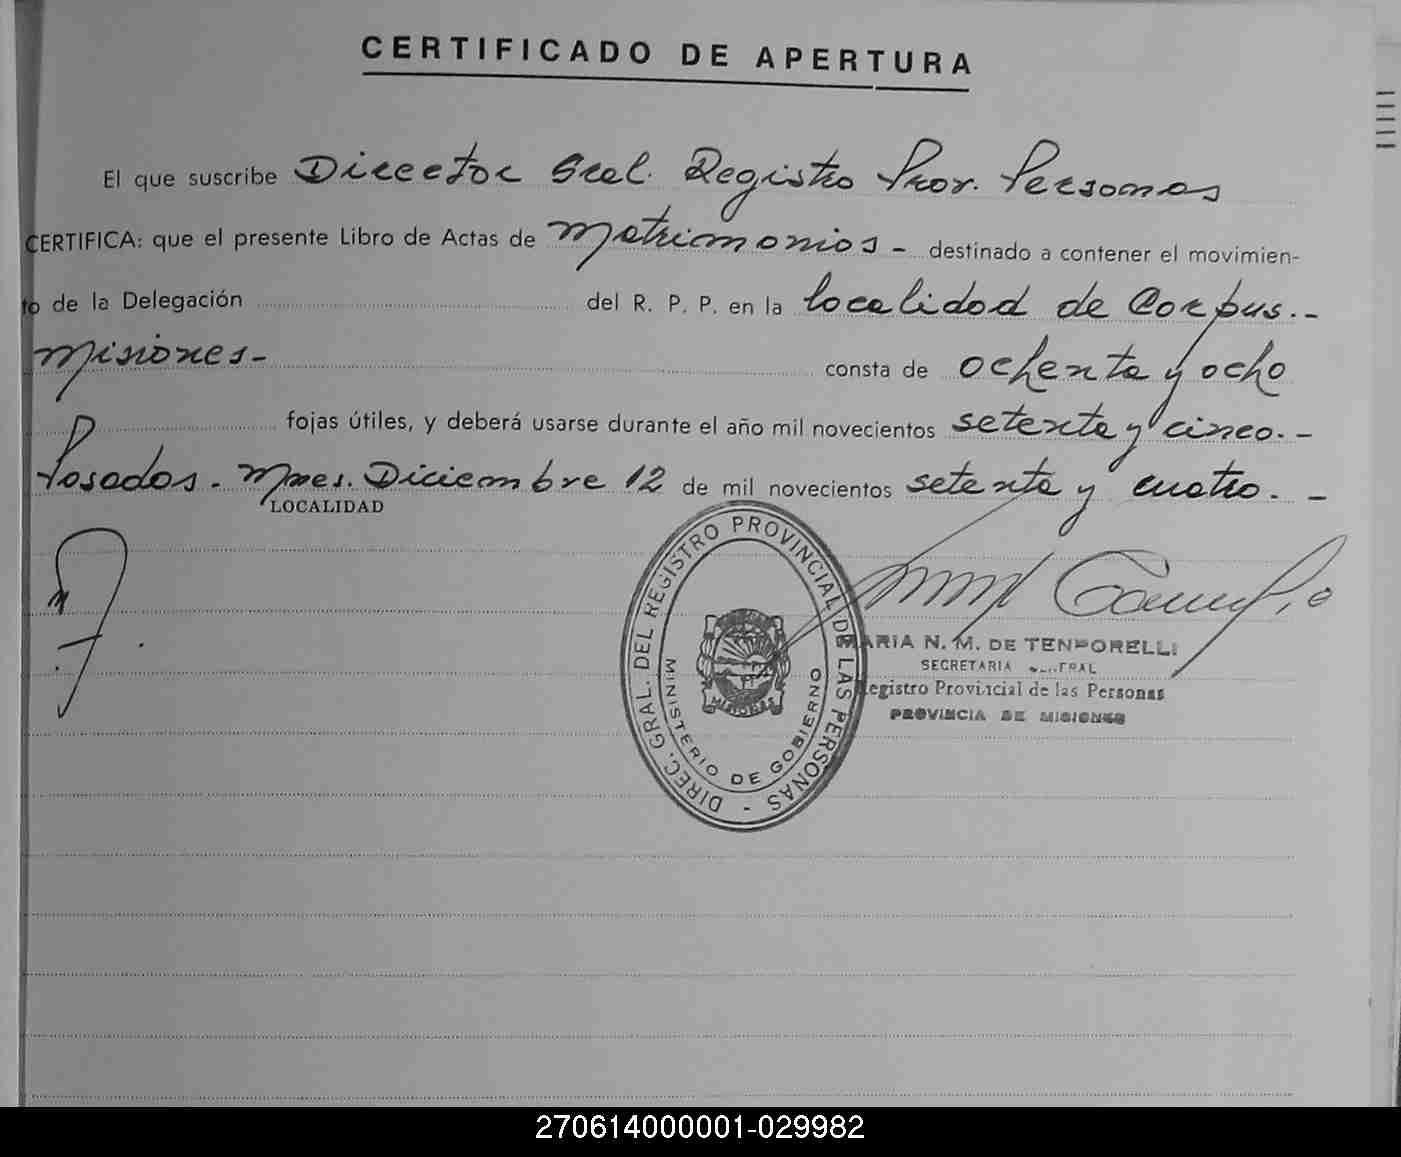 CERTIFICADO DE APERTURA
El que suscribe Director Gral. Registro Prov. Personas
CERTIFICA: que el presente Libro de Actas de Matrimonios - destinado a contener el movimien-
to de la Delegación del R. P. P. en la localidad de Corpus.-
Misiones- consta de ochenta y ocho
fojas útiles, y deberá usarse durante el año mil novecientos setenta y cinco.-
Posadas. Mnes. Diciembre 12 de mil novecientos setenta y cuatro. -
LOCALIDAD
DIREC. GRAL. DEL REGISTRO PROVINCIAL DE LAS PERSONAS -
MINISTERIO DE GOBIERNO
MISIONES
MARIA N. M. DE TEMPORELLI
SECRETARIA GENERAL
Registro Provincial de las Personas
PROVINCIA DE MISIONES
270614000001-029982